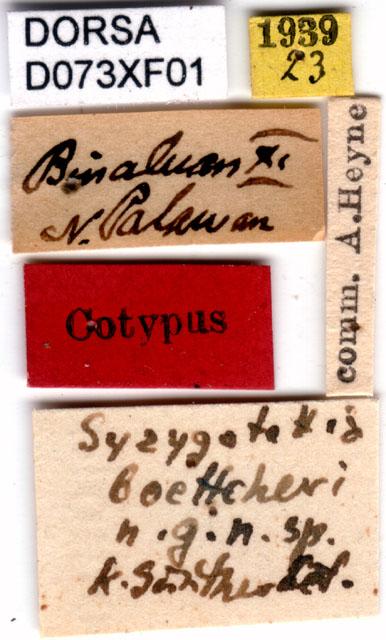 DORSA
D073XF01
1939
23
Binaluan XI.
N. Palawan
comm. A.Heyne
Cotypus
boettcheri
n.g.n.sp.
K. Günther det.